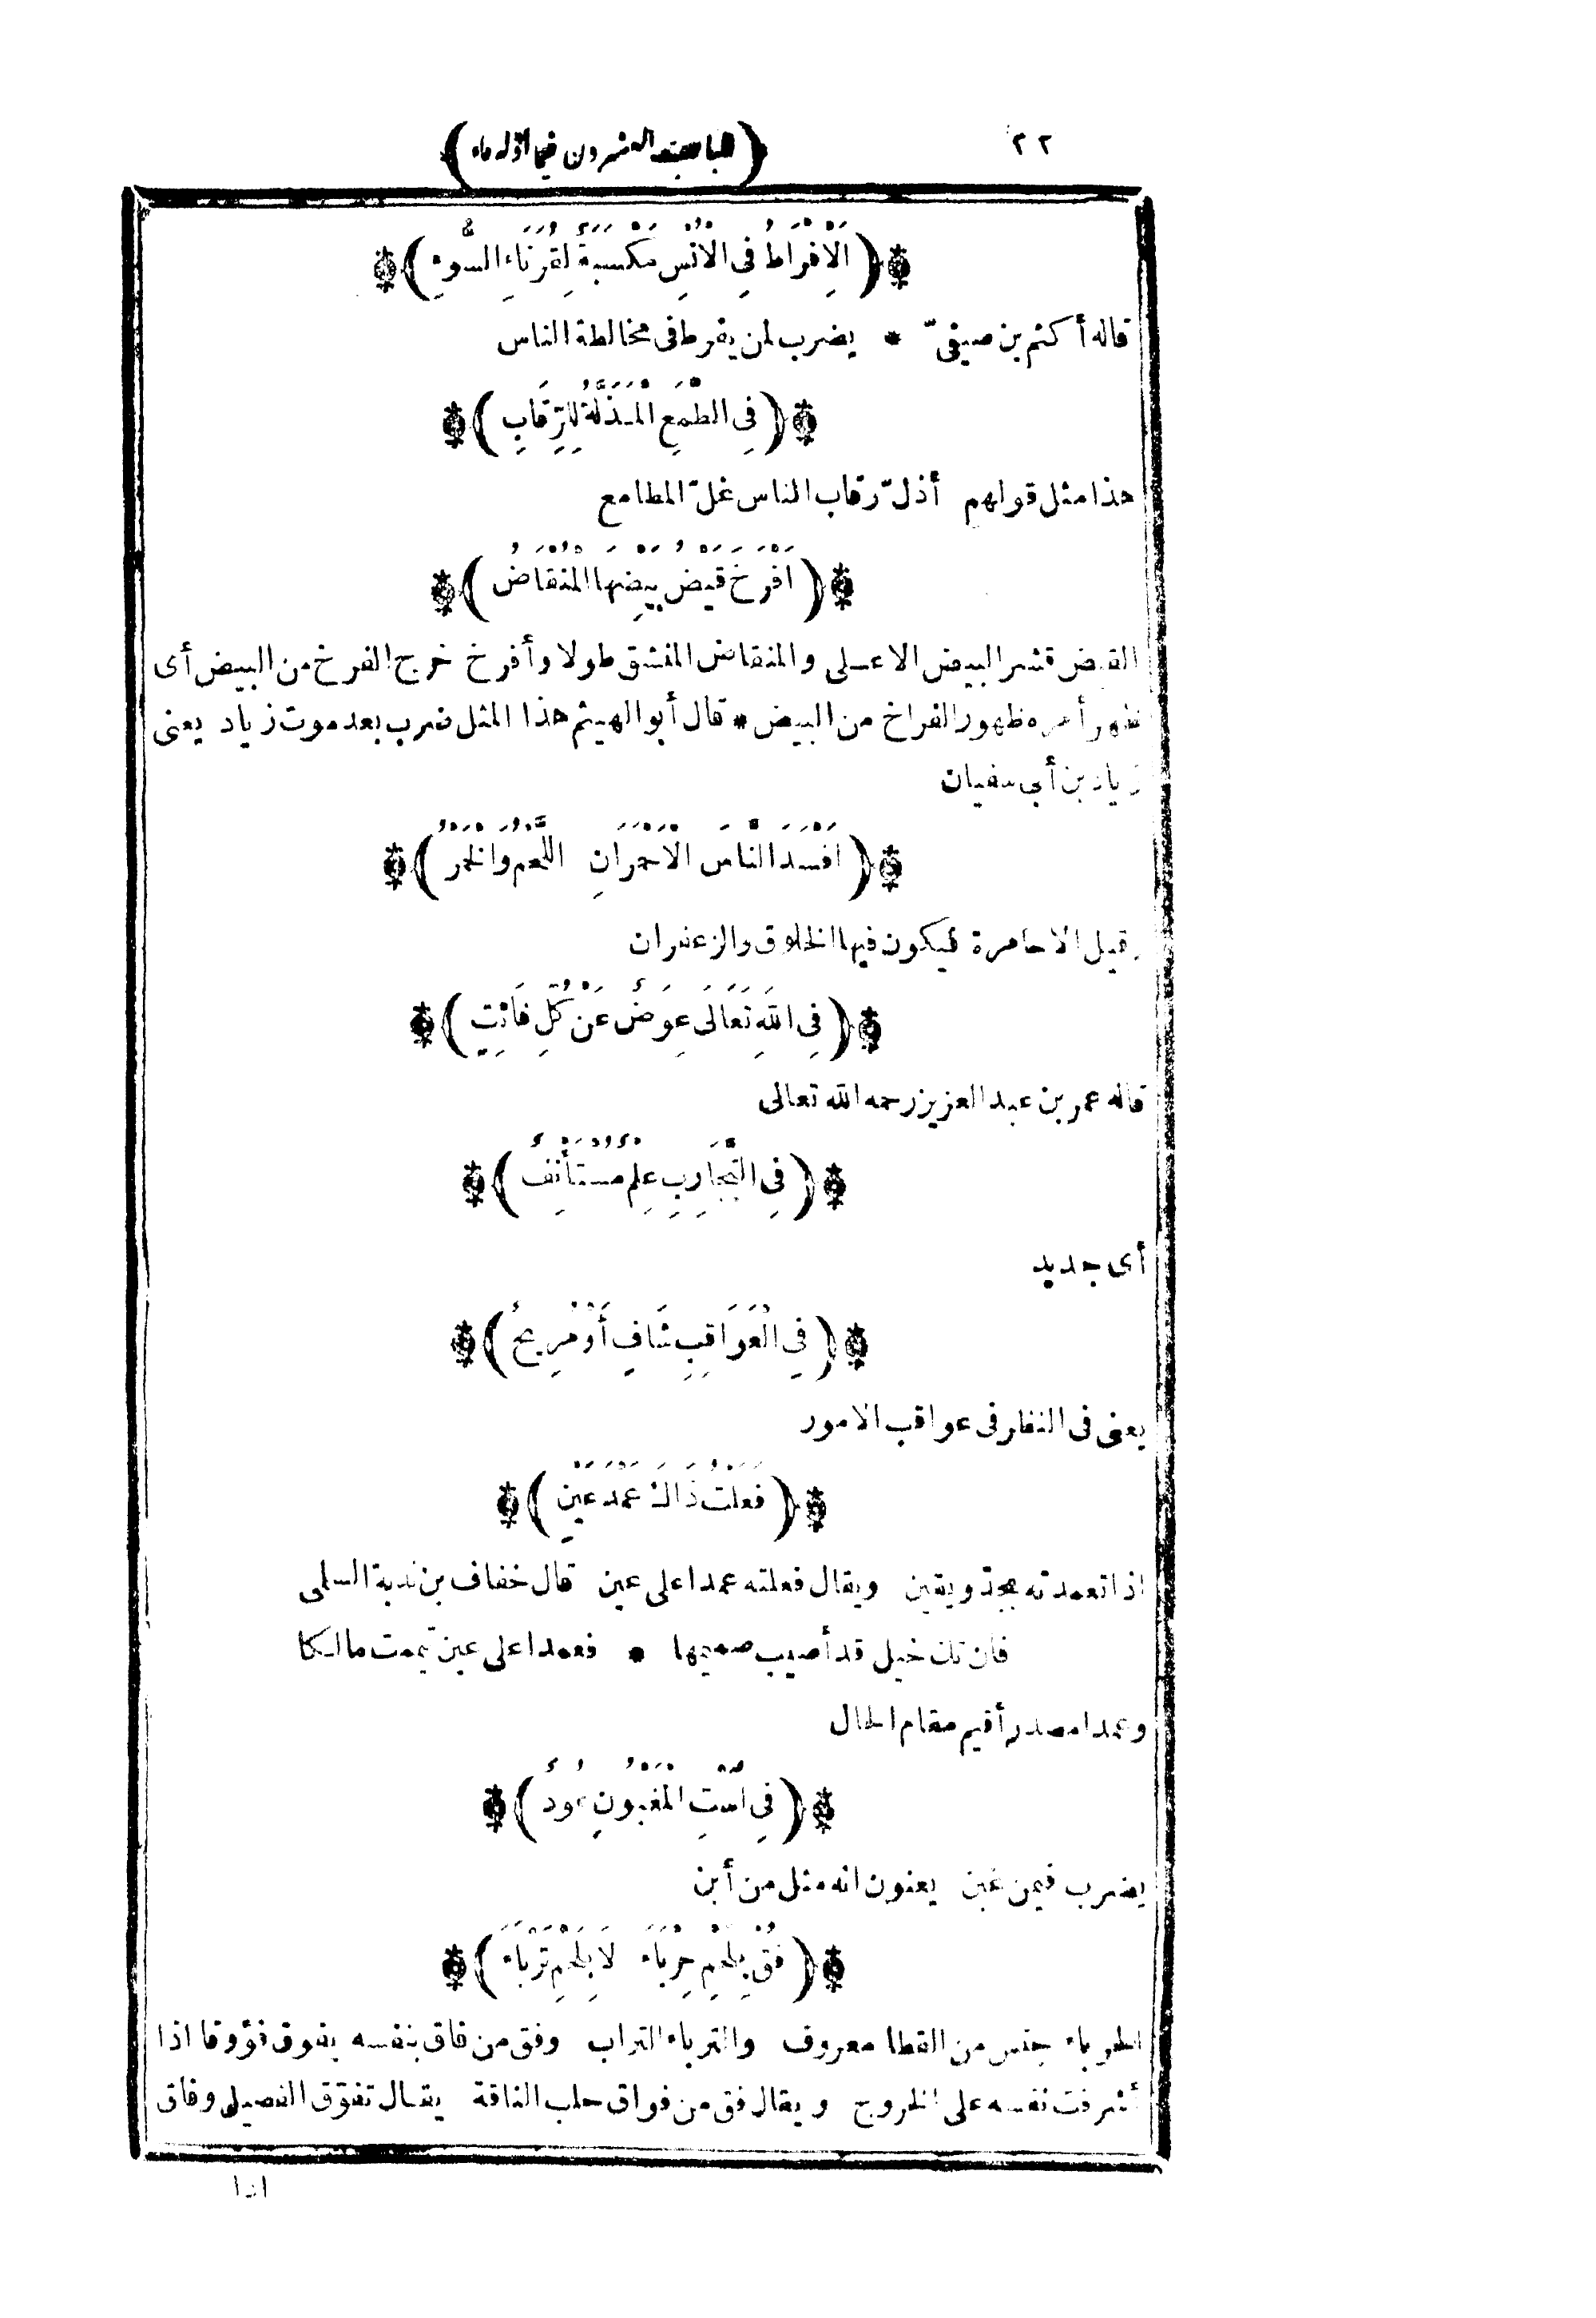 ٢٢
(الباب العشرون فيما اوّله فاء)
(اَلْاِفْرَاطُ فِي الْاُنْسِ مَكْسَبَةٌ لِقُرَنَاءِ السُّوءِ)
قاله أكثم بن صيفى * يضرب لمن يفرط فى مخالطة الناس
(فِي الطَّمَعِ الْمَذَلَّةُ لِلرِّقَابِ)
هذا مثل قولهم أذلّ رقاب الناس غلّ المطامع
(اَفْرَخَ قَيْضُ بَيْضِهَا الْمُنْقَاضُ)
القيض قشر البيض الاعلى والمنقاض المنشق طولا وأفرخ خرج الفرخ من البيض أى
ظهر أمره ظهور الفراخ من البيض * قال أبو الهيثم هذا المثل ضرب بعد موت زياد يعنى
زياد بن أبى سفيان
(اَفْسَدَ النَّاسَ الْاَحْمَرَانِ اللَّحْمُ وَالْخَمْرُ)
وقيل الاحامرة فيكون فيها الخلوق والزعفران
(فِي اللّٰهِ تَعَالَى عِوَضٌ عَنْ كُلِّ فَائِتٍ)
قاله عمر بن عبد العزيز رحمه الله تعالى
(فِي التَّجَارِبِ عِلْمٌ مُسْتَأْنَفٌ)
أى جديد
(فِي الْعَوَاقِبِ شَافٍ أَوْ مُرِيحٌ)
يعنى فى النظر فى عواقب الامور
(فَعَلْتُ ذَاكَ عَمْدَ عَيْنٍ)
اذا تعمدته بجدّ ويقين ويقال فعلته عمدا على عين قال خفاف بن ندبة السلمى
فان تك خيلى قد أصيب صميمها * فعمدا على عين تيممت مالكا
وعمدا مصدر أقيم مقام الحال
(فِي اسْتِ الْمَغْبُونِ عُودٌ)
يضرب فيمن غبن يعنون انه مثل من أبن
(فُقْ بِلَحْمِ حِرْبَاءَ لَا بِلَحْمِ تَرْبَاءَ)
الحرباء جنس من القطا معروف والترباء التراب وفق من فاق بنفسه يفوق فؤوقا اذا
أشرفت نفسه على الخروج ويقال فق من فواق حلب الناقة يقال تفوّق الفصيل وفاق
اذا